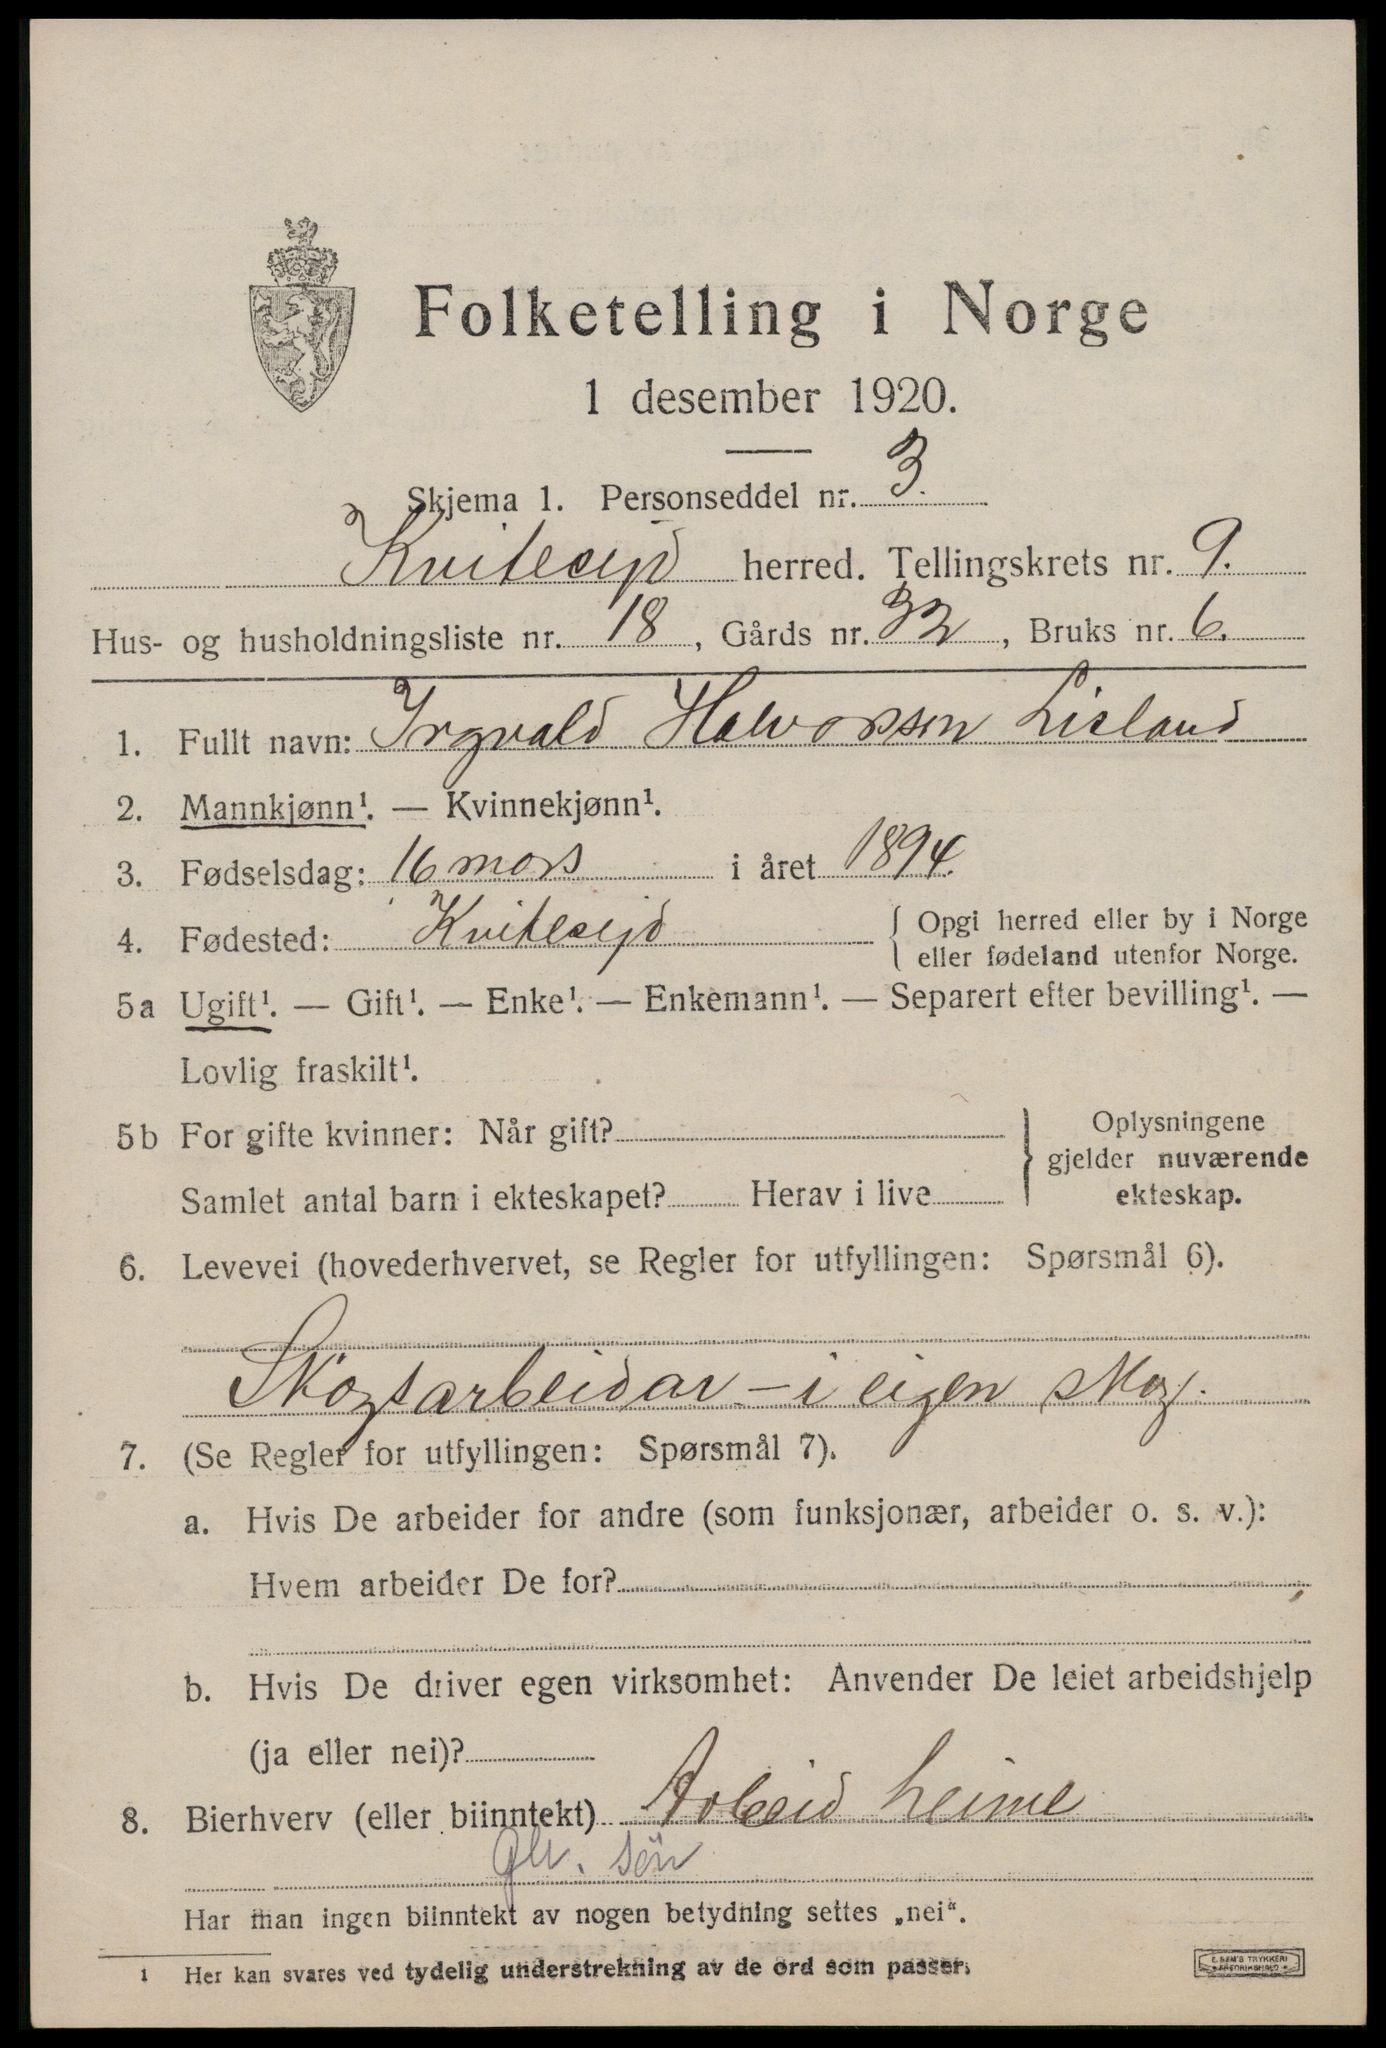 Folketelling i Norge
1 desember 1920.
Skjema 1. Personseddel nr. 3.
Kvitesejd herred. Tellingskrets nr. 9.
Hus- og husholdningsliste nr. 18, Gårds nr. 32, Bruks nr. 6.
1. Fullt navn: Ingvald Halvorssen Lisland
2. Mannkjønn¹. — Kvinnekjønn¹.
3. Fødselsdag: 16 mars i året 1894.
4. Fødested: Kvitesejd { Opgi herred eller by i Norge
eller fødeland utenfor Norge.
5a Ugift¹. — Gift¹. — Enke¹. — Enkemann¹. — Separert efter bevilling¹. —
Lovlig fraskilt¹.
5b For gifte kvinner: Når gift? } Oplysningene
gjelder nuværende
Samlet antal barn i ekteskapet? Herav i live ekteskap.
6. Levevei (hovederhvervet, se Regler for utfyllingen: Spørsmål 6).
Skogsarbeidar - i eigen skog.
7. (Se Regler for utfyllingen: Spørsmål 7).
a. Hvis De arbeider for andre (som funksjonær, arbeider o. s. v.):
Hvem arbeider De for?
b. Hvis De driver egen virksomhet: Anvender De leiet arbeidshjelp
(ja eller nei)?
8. Bierhverv (eller biinntekt) Arbeid heime
søn
Har man ingen biinntekt av nogen betydning settes „nei“.
¹ Her kan svares ved tydelig understrekning av de ord som passer.
E. SEM'S TRYKKERI
FREDRIKSHALD